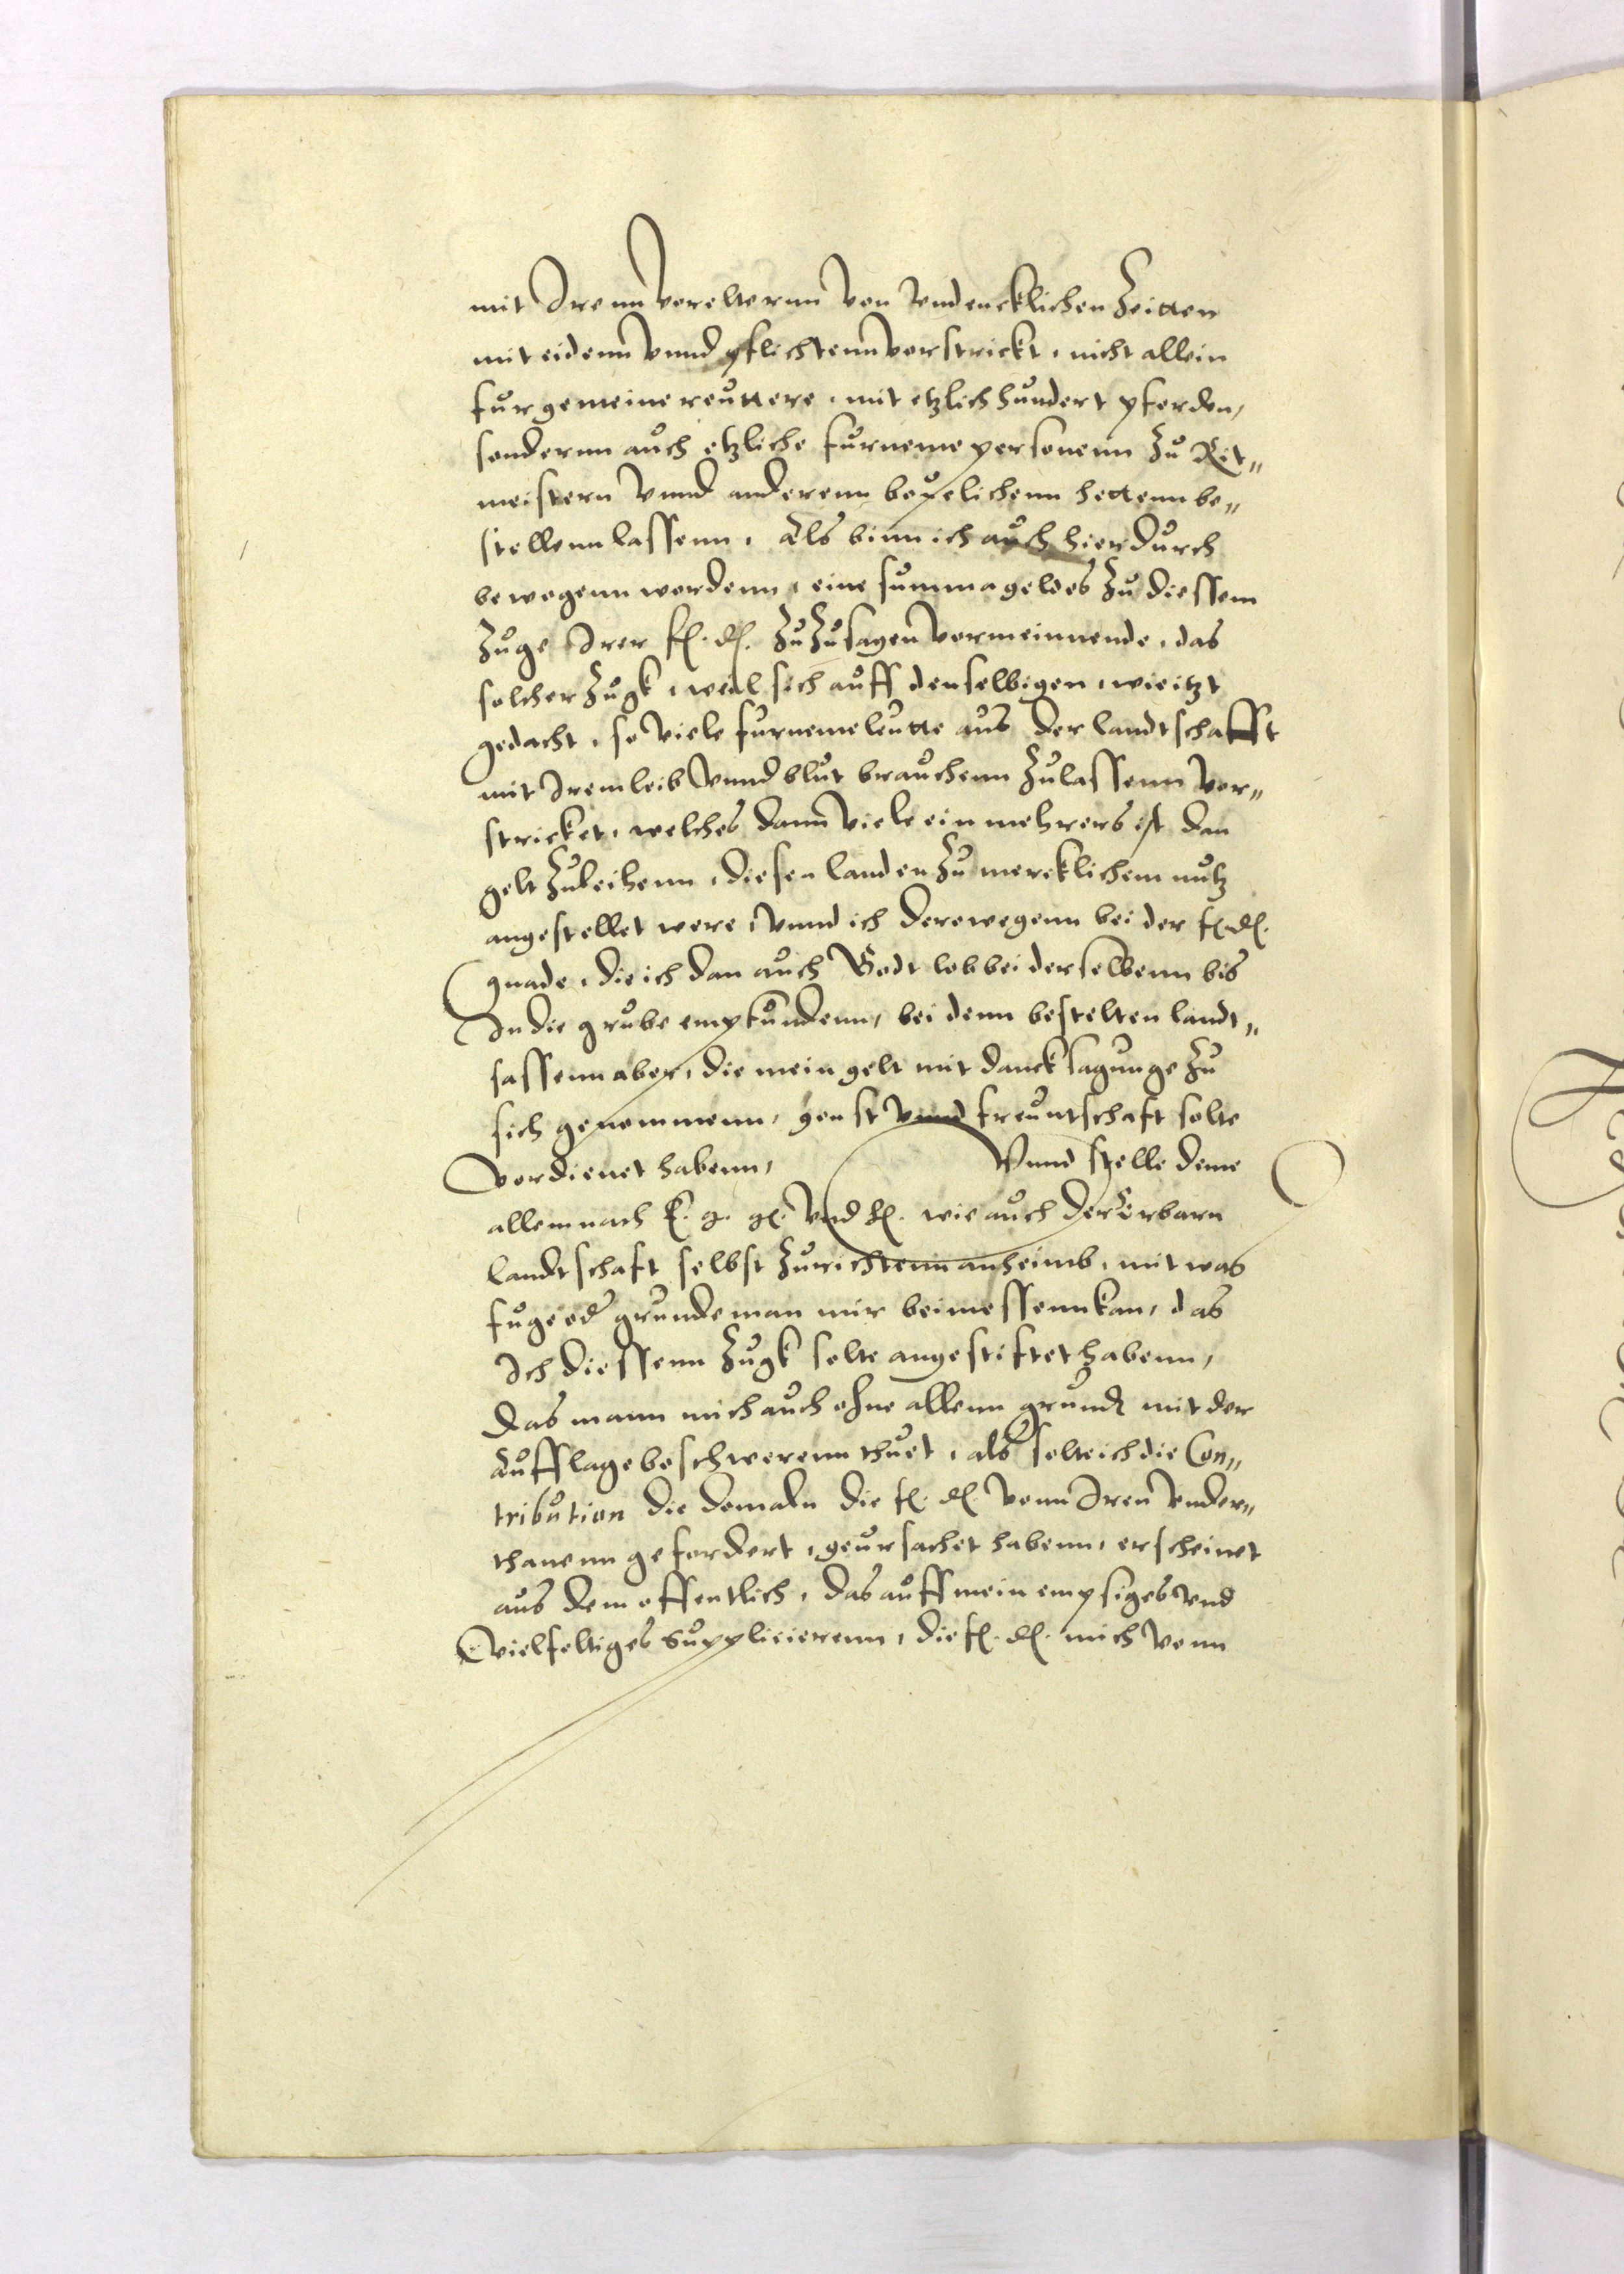 mit Irenn vorelternn von undencklichen Zeitten
mit eidenn unnd pflichtenn vorstrickt, nicht allein
fur gemeine reuttere, mit etzlich hundert pferden,
sondernn auch etzliche furneme personenn zu Rit„
meistern unnd anderenn bevelichenn hettenn be„
stellenn lassenn, Als binn ich auch hierdurch
bewogenn wordenn, eine summa geldes zu diessem
zuge Irer f. d. zuzusagen vormeinnende, das
solcher zugk, weil sich auff denselbigen, wie itzt
gedacht, so viele furneme leutte aus der landtschafft
mit Irem leib unnd blut brauchenn zulassenn vor„
stricket, welches dann viele ein mehrers ist dan
gelt zuleihenn, diesen landen zu mercklichem nutz
angestellet were, unnd ich derewegenn bei der f. d.
gnade, die ich dan auch Godt lob bei derselbenn bis
In die grube empfundenn, bei denn bestelten landt„
sassenn aber, die mein gelt mit dancksagunge zu
sich genommenn, gonst unnd freuntschaft solte
vordienet habenn, Unnd stelle deme
allem nach E. g. g. und f. wie auch der Erbarn
landtschaft selbst zurichtenn anheimb, mit was
fuge od grunde man mir beimessenn kan, das
Ich diessenn zugk solte angestiftet habenn,
Das mann mich auch ohne allenn grundt mit der
Aufflage beschwerenn thuet, als solte ich die Con„
tribution die domaln die f. d. vonn Iren under„
thanenn gefordert, geursachet habenn, erscheinet
aus dem offentlich, das auff mein empsiges und
vielfeltiges Supplicierenn, die f. d. mich vonn